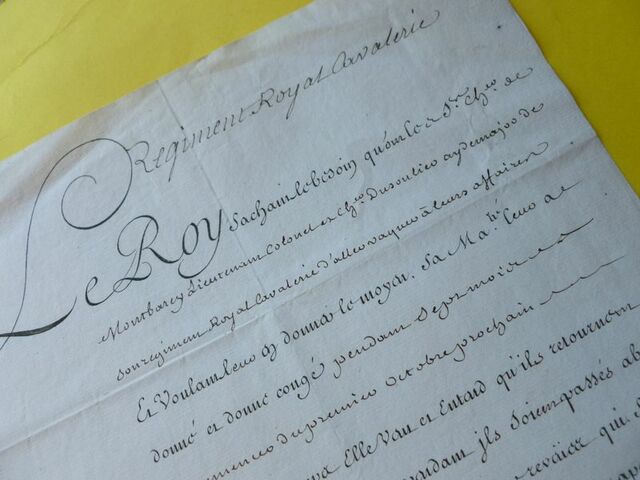 Regiment Royal Cavalerie
Le Roy Sachant le besoin qu'ont le S.r Ch.er de
Montbarey Lieutenant Colonel et Ch.er Dusoulier aydemajor de
son regiment Royal Cavalerie d'aller vaquer à leurs affaires
Et Voulant leur en donner le moyen. Sa Ma.té leur a
donné et donne congé pendant Sept mois a
du premier Octobre prochain
Elle Veut et Entend qu'ils retournent
jls soient passés
qui